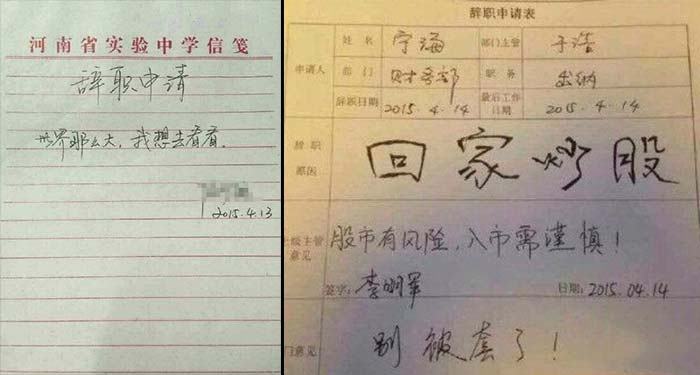 河南省实验中学信笺
辞职申请
世界那么大，我想去看看。
2015.4.13
辞职申请表
申请人
姓名
宁海
部门主管
于浩
部门
财务部
职务
出纳
辞职日期
2015.4.14
最后工作日期
2015.4.14
辞职原因
回家炒股
上级主管意见
股市有风险，入市需谨慎！
签字：李明军
日期：2015.04.14
门意见
别被套了！